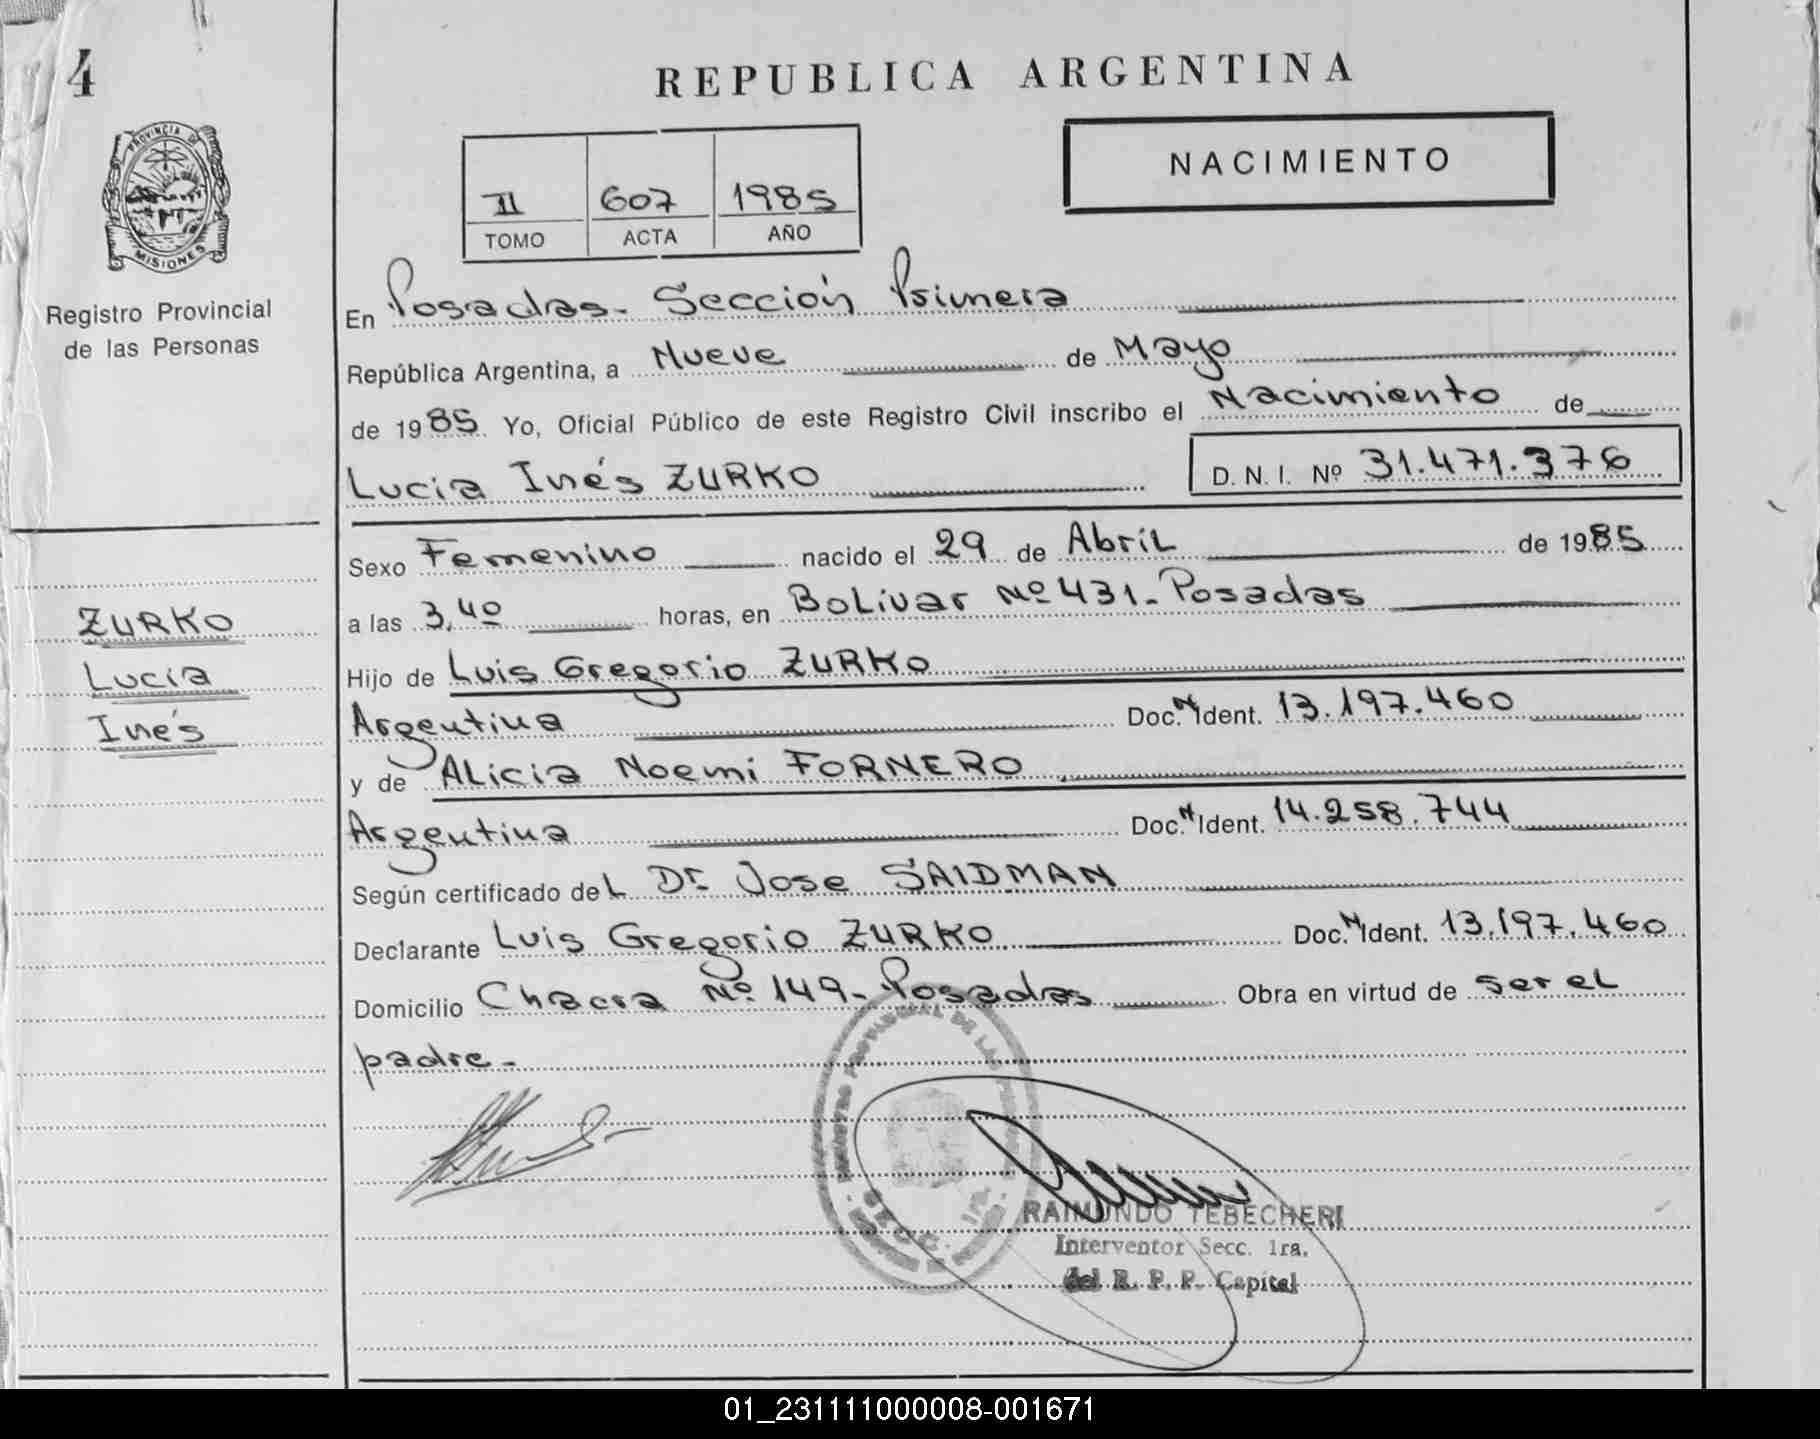 4
REPUBLICA ARGENTINA
PROVINCIA DE
MISIONES
Registro Provincial
de las Personas
II 607 1985
TOMO ACTA AÑO
NACIMIENTO
En Posadas- Sección Primera
República Argentina, a Nueve de Mayo
de 1985 Yo, Oficial Público de este Registro Civil inscribo el Nacimiento de
Lucia Inés ZURKO D. N. I. Nº 31.471.376
Sexo Femenino nacido el 29 de Abril de 1985
a las 3,40 horas, en Bolivar Nº 431- Posadas
Hijo de Luis Gregorio ZURKO
Argentina Doc. N Ident. 13.197.460
y de Alicia Noemi FORNERO
Argentina Doc. N Ident. 14.258.744
Según certificado del Dr. Jose SAIDMAN
Declarante Luis Gregorio ZURKO Doc. N Ident. 13.197.460
Domicilio Chacra Nº 149- Posadas Obra en virtud de ser el
padre-
ZURKO
Lucía
Inés
PROVINCIAL DE LAS
SECC. 1ra.
RAIMUNDO TEBECHERI
Interventor Secc. 1ra.
del R. P. P. Capital
01_231111000008-001671